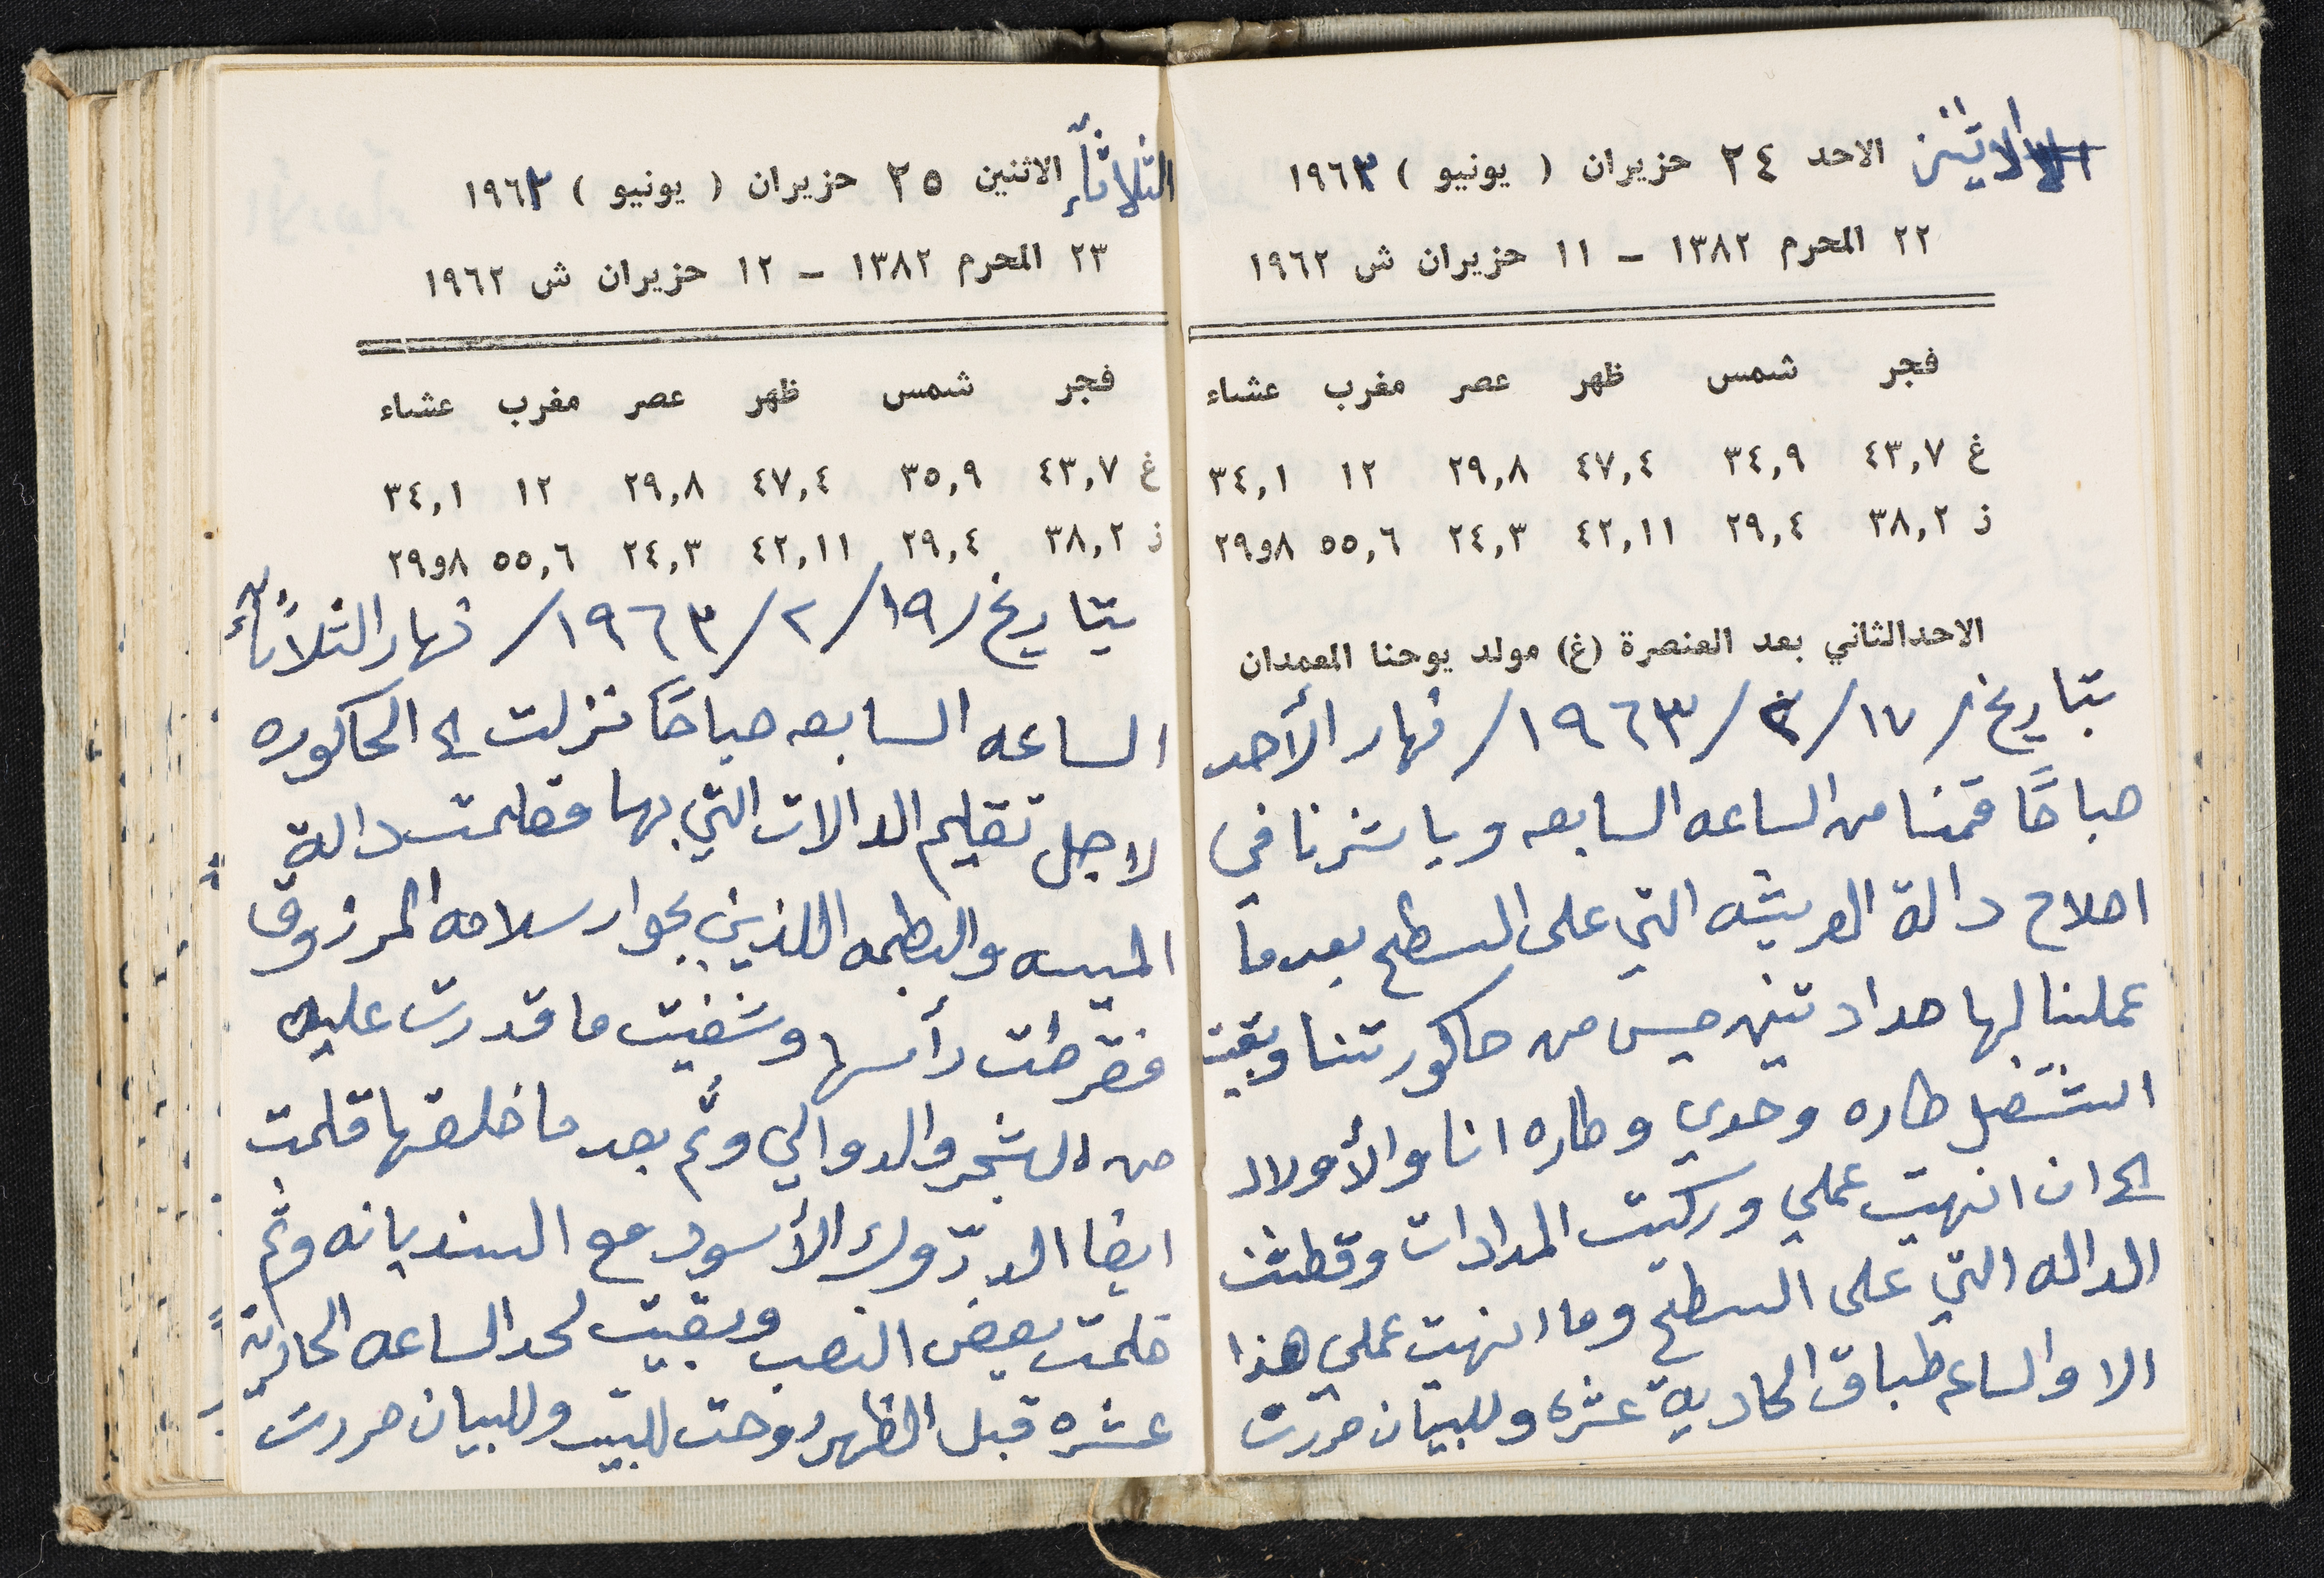 الاثنين الاحد ٢٤ حزيران ( يونيو ) ١٩٦٣
٢٢ المحرم ١٣٨٢ – ١١ حزيران ش ١٩٦٢
فجر شمس ظهر عصر مغرب عشاء
غ ٤٣,٧ ٣٤,٩ ٤٧,٤ ٢٩,٨ ١٢ ٣٤,١
ز ٣٨,٢ ٢٩,٤ ٤٢,١١ ٢٤,٣ ٥٥,٦ ٨و٢٩
الاحد الثاني بعد العنصرة (غ) مولد يوحنا المعمدان
بتاريخ/ ١٧/ ٢/ ١٩٦٣/ نهار الأحد
صباحًا قمنا من الساعه السابعه وباشرنا في
اصلاح دالة العريشه التي على السطح بعد ما
عملنا لها مدادتين ميس من حاكورتنا وبقيت
اشتغل طاره وحدي وطاره انا والأولاد
الى ان انهيت عملي وركبت المدادات وقطفت
الداله التي على السطح وما انهيت عملي هذا
الا والساعه طباق الحادية عشره وللبيان حررت
الثلاثآء الاثنين ٢٥ حزيران ( يونيو ) ١٩٦٣
٢٣ المحرم ١٣٨٢ – ١٢ حزيران ش ١٩٦٢
فجر شمس ظهر عصر مغرب عشاء
غ ٤٣,٧ ٣٥,٩ ٤٧,٤ ٢٩,٨ ١٢ ٣٤,١
ز ٣٨,٢ ٢٩,٤ ٤٢,١١ ٢٤,٣ ٥٥,٦ ٨و٢٩
بتاريخ/ ١٩/ ٢/ ١٩٦٣/ نهار الثلاثآء
الساعه السابعه صباحًا نزلت الى الحاكوره
لاجل تقليم الدالات التي بها فقلمت دالة
الميسه والبطمه اللذين بجوار سلامه المرزوق
فقرطت رأسها وشفيت ما قدرت عليه
من الشجر والدوالي وثم بعد ما خلصتها قلمت
ايضا الدبّرولـ الأسود مع السنديانه وثم
قلمت بعض النصب وبقيت لحد الساعه الحادية
عشره قبل الظهر روحت للبيت وللبيان حررت